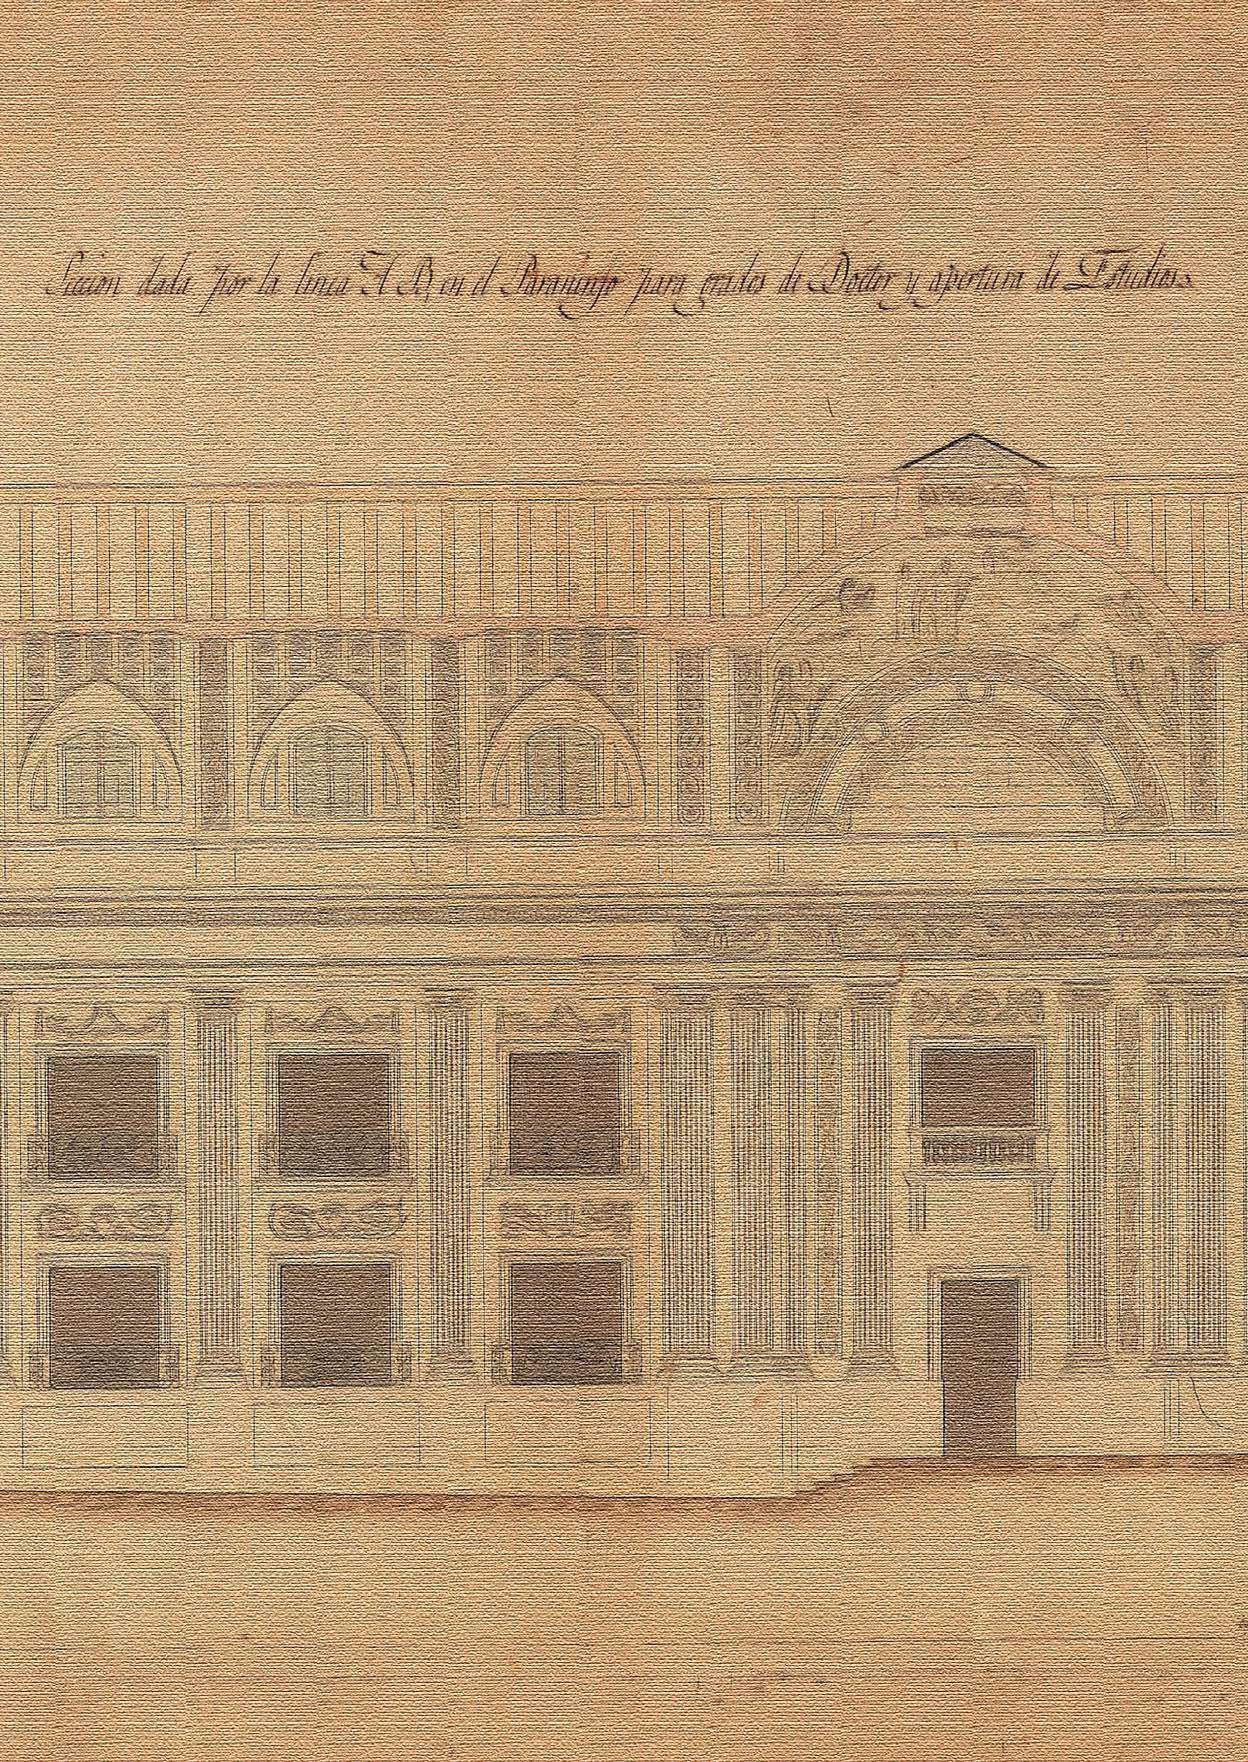 Seccion dada por la linea A B, en el Paraninfo para grados de Doctor y apertura de Estudios.